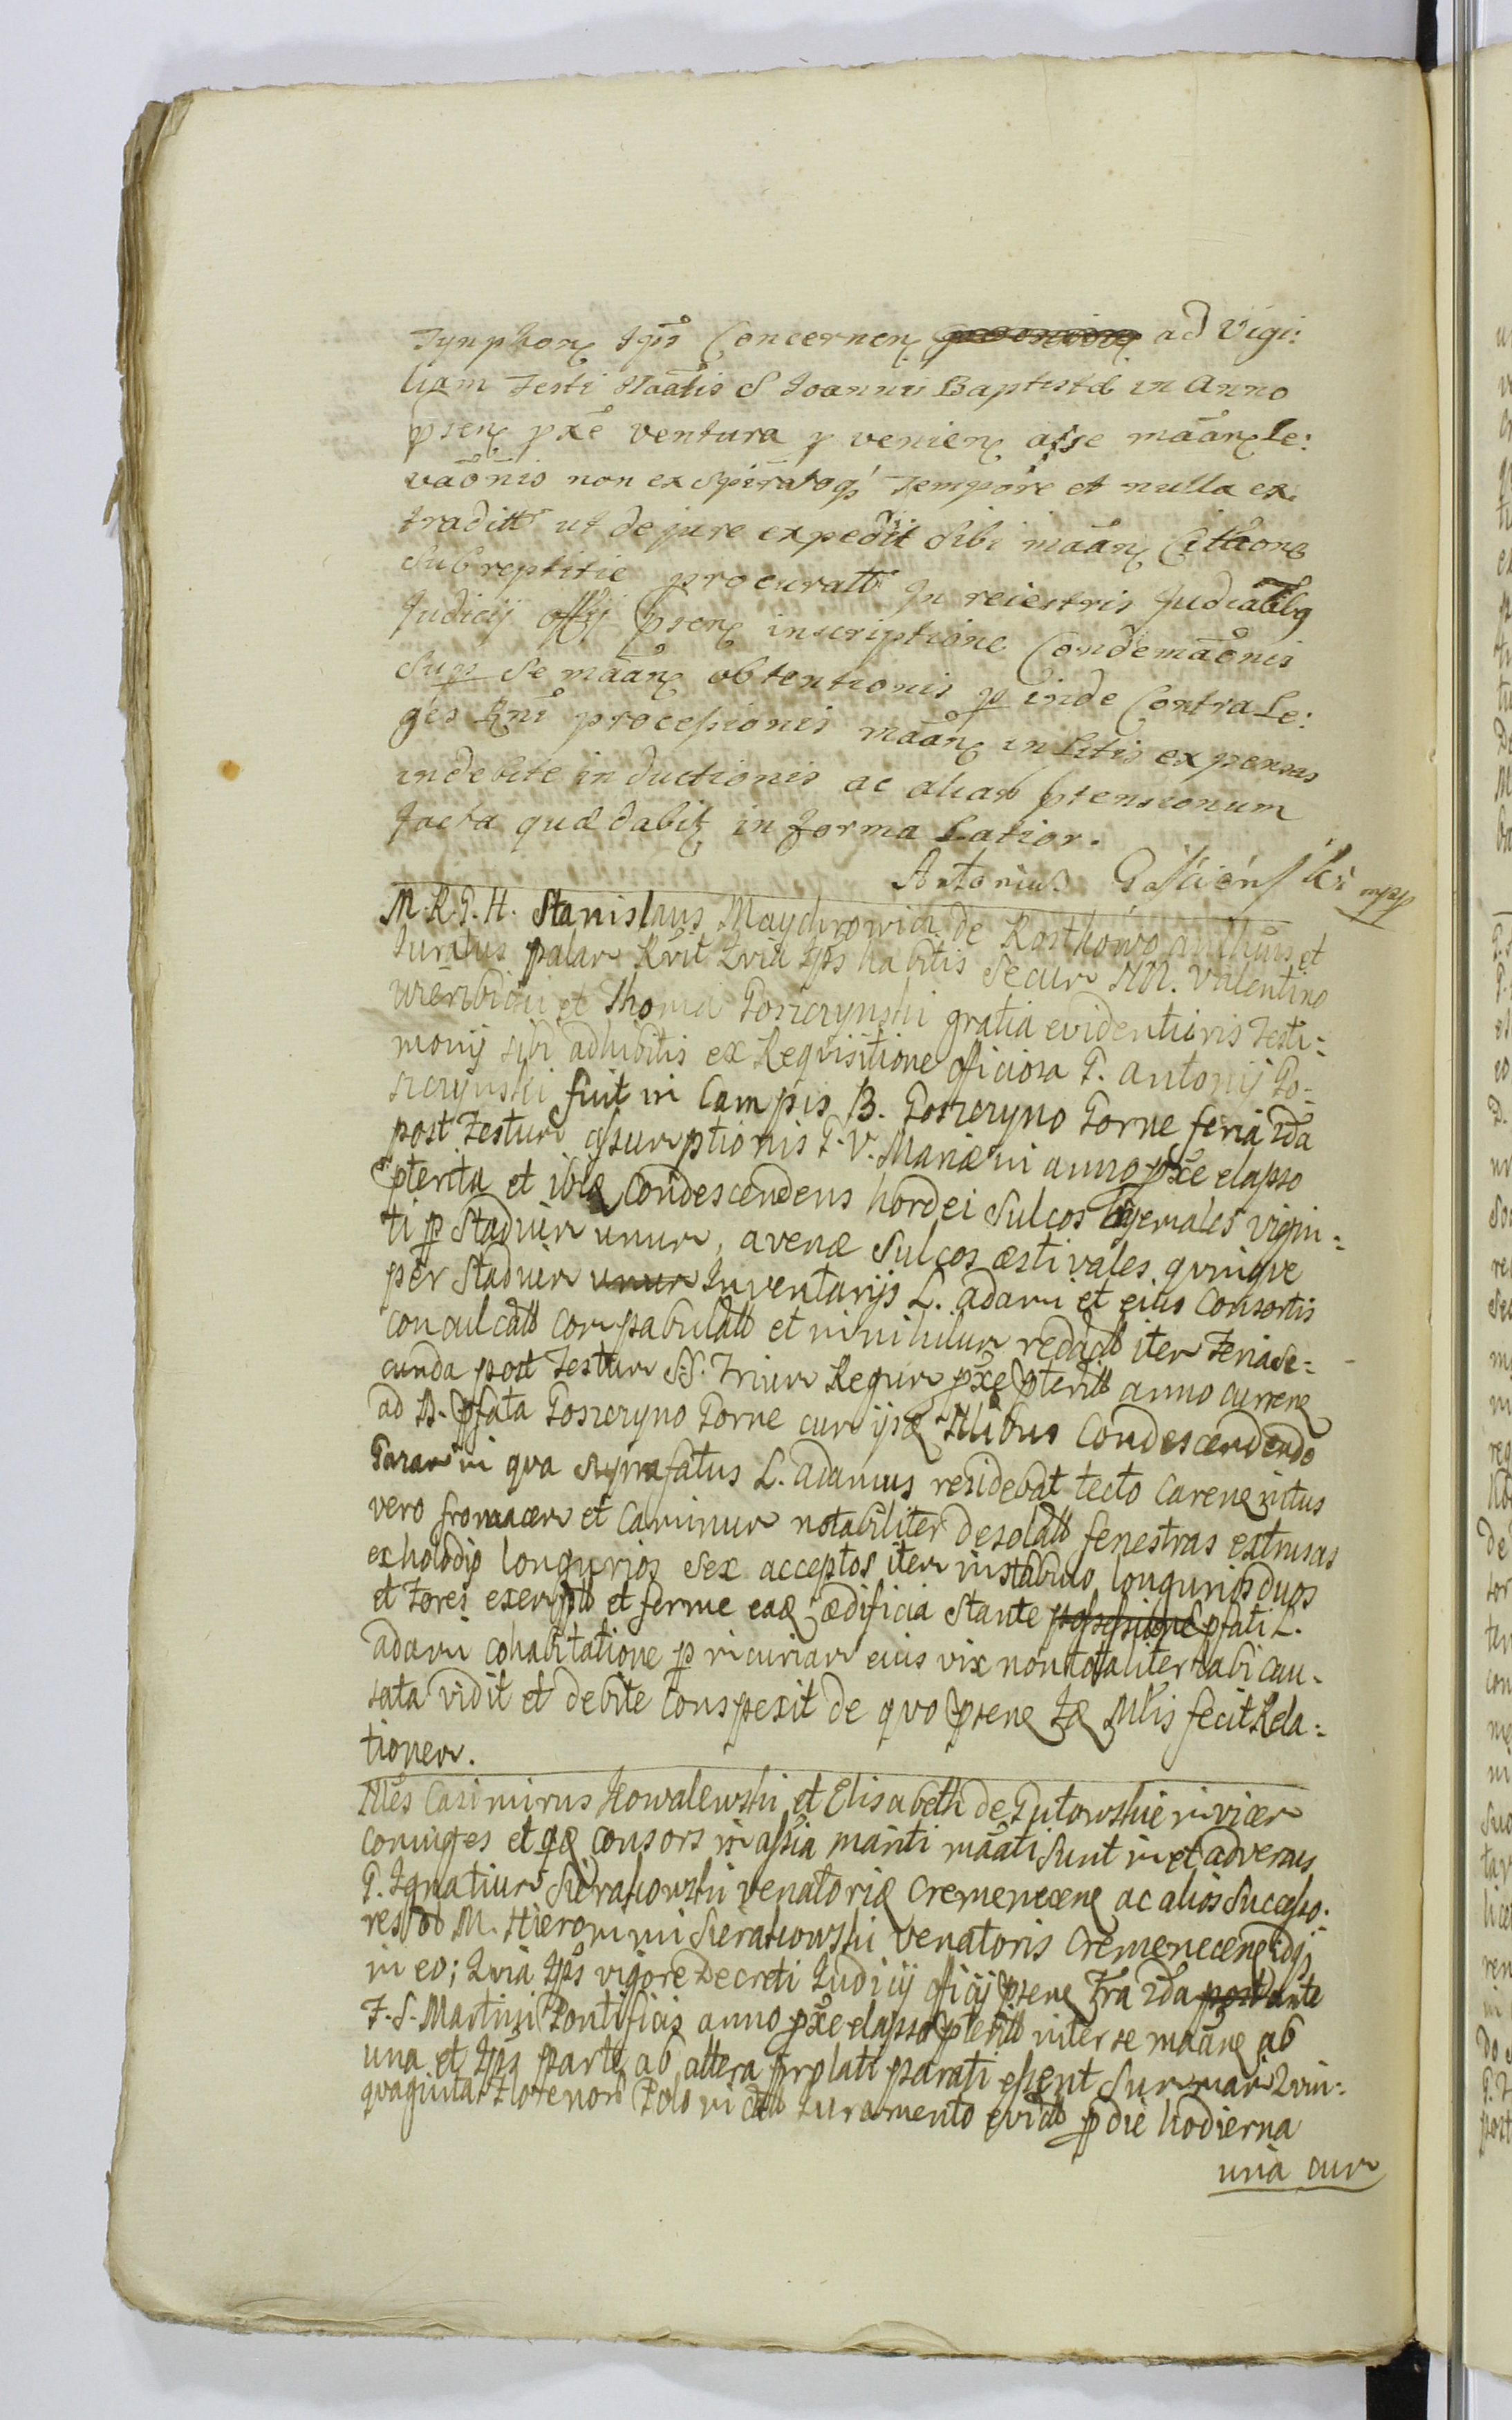 Tynphonꝝ Ipõ Concernenꝝ ad Vigi:
liam Festi Naãlis S Joannis Baptistæ in Anno
psenꝝ pxẽ ventura p venienꝝ asse mãanꝝ Le:
vaõnis non exspiratoqꝫ Tempore et nulla ex:
traditt ut de jure expedit sibi mãanꝝ Citaõne
Subreptitie procuratt In reiestris Judicialibꝫ
Judicij offij psenꝝ inscriptione Condemnaõnis
Sup se mãanꝝ obtentionis p inde Contra Le:
ges Rni processionis mãanꝝ in Litis expensas
indebite inductionis ac aliarũ ptensionum
facta quæ dabitꝝ in forma Latior.
Antonius mpp
M. R. P. H. Stanislaus Maychrowicz de Rostkowo et
Juratus palam Rvit Qvia Ips habitis secum NN. Valentino
Wierzbicki et Thoma Poszczynski gratia evidentioris Testi=
monij sibi adhibitis ex Reqvisitione officiosa P. Antonij Po=
szczynski fuit in Campis B. Poszczyno Porne feria 2da
post Festum assumptionis B. V. Mariæ in anno pxe elapso
pterita et ibiꝫ Condescendens hordei Sulcos hyemales vigin=
ti p Stadium unum, avenæ Sulcos æstivales qvinqve
per Stadium unum Inventarijs L. Adami et eius Consortis
conculcatt compabulatt et in nihilum redactt item Feria Se=
cunda post Festum SS. Trium Regum pxe pteritt anno currenꝝ
ad B. pfata Poszczyno Porne cum ijsdꝫ Nlibus Condescendendo
in qva supra fatus L. Adamus residebat tecto Carenꝝ intus
vero fornacem et Caminum notabiliter desolatt fenestras extrusas
ex holodio longurios sex acceptos item in stabulo longurios duos
et Fores exemptt et ferme eadꝫ ædificia stante possessione pfati L.
Adami cohabitatione p incuriam eius vix non totaliter labi cau=
sata vidit et debite Conspexit de qvo psene Iꝫ Mlis fecit Rela=
tionem.
Nles Casimirus Kowalewski et Elisabeth de Putowskie invicem
coniuges et qꝫ Consors in assia mariti mãati sunt in et adversus
P. Ignatium Sierakowski venatoridꝫ Cremenecenꝝ ac alios Successo=
res M. Hieronimi Sierakowski venatoris Cremenecenꝝ Idqꝫ
in eo; Qvia Ips vigore Decreti Judicij officij psenꝝ Fra 2da post ante
F. S. Martini Pontificis anno pxe elapso pteritt inter se mãane ab
una et Ips parte ab altera prolati parati essent Summam Qvin=
qvaginta Florenor Polo Juramento evictt p die hodierna
una cum